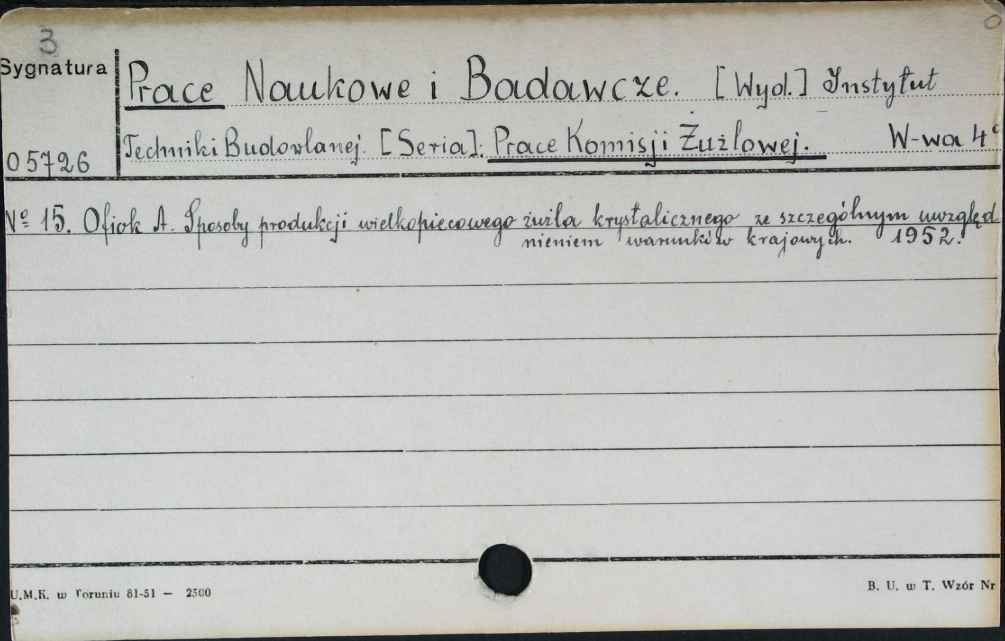 3
Sygnatura
Prace Naukowe i Badawcze. [Wyd.] Instytut
05726
Techniki Budowlanej. [Seria]: Prace Komisji Żużlowej. W-wa 4°
Nº 15. Ofiok A. Sposoby produkcji wielkopiecowego żużla krystalicznego ze szczególnym uwzględ
nieniem warunków krajowych. 1952.
U.M.K. w Toruniu 81-51 — 2500
B. U. w T. Wzór Nr